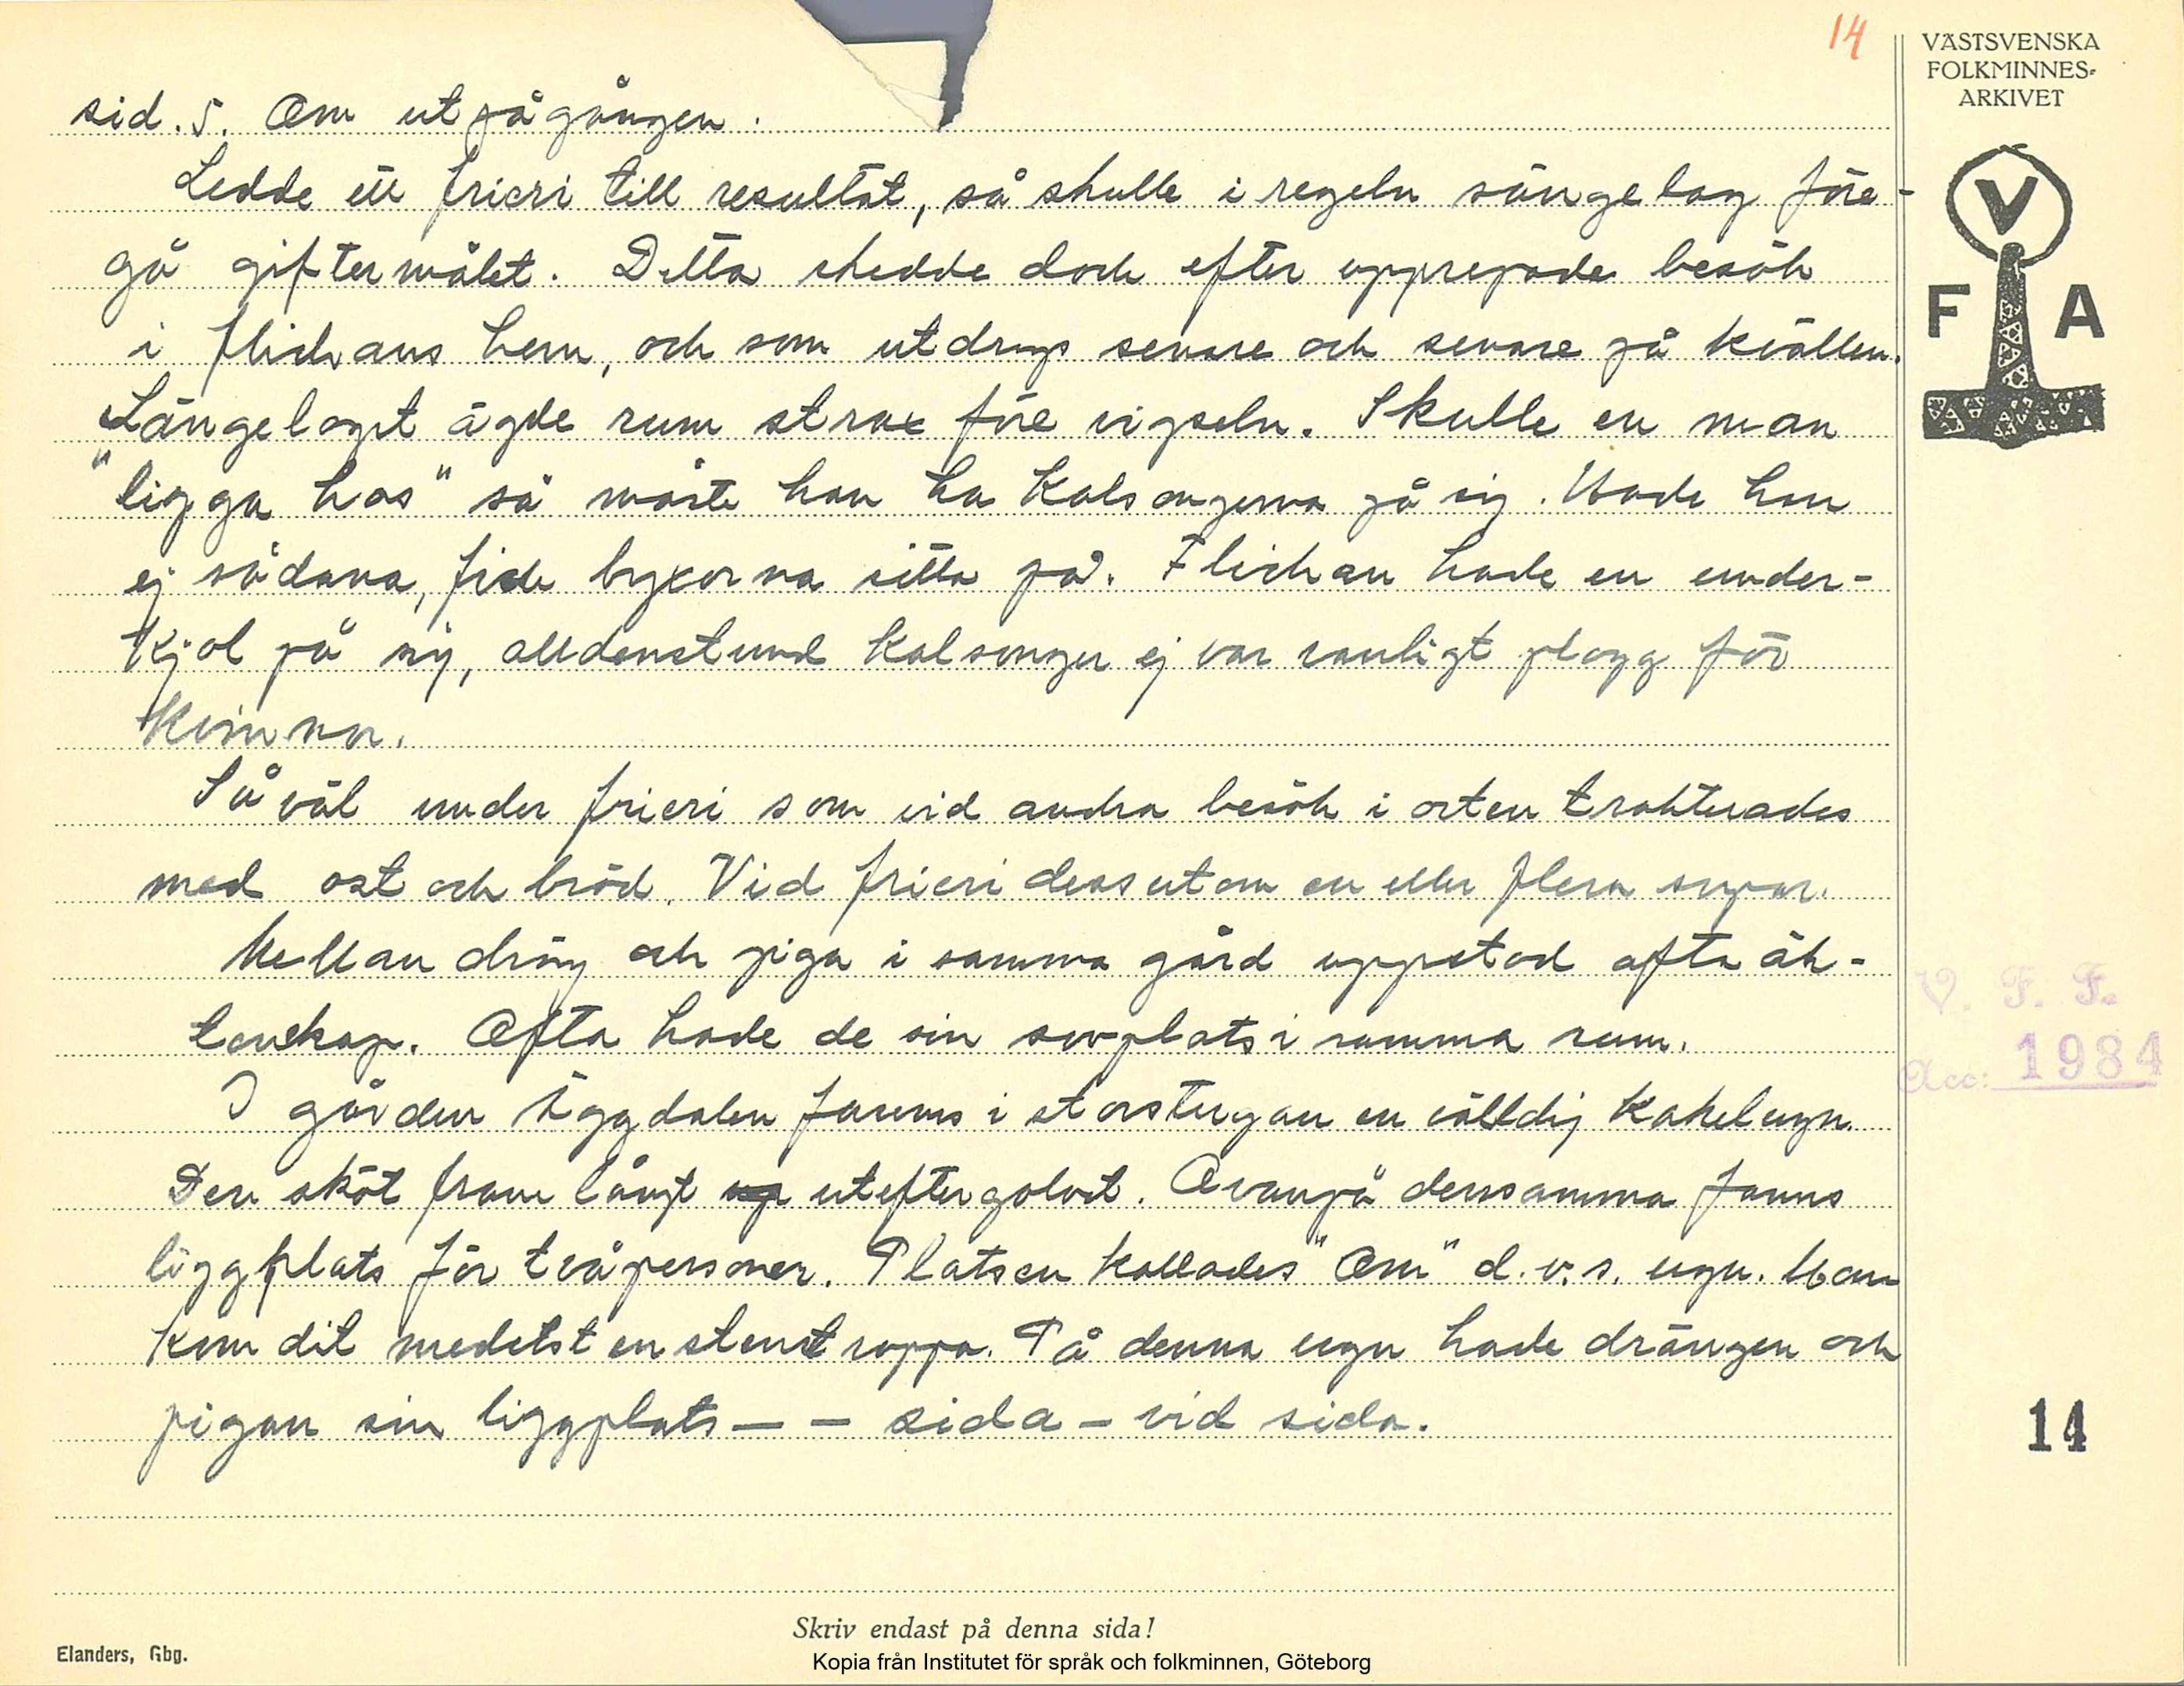 14
VÄSTSVENSKA
FOLKMINNES-
ARKIVET
V
F A
sid. 5. Om utpågången.
Ledde ett frieri till resultat, så skulle i regeln sängelag före-
gå giftermålet. Detta skedde dock efter upprepade besök
i flickans hem, och som utdrogs senare och senare på kvällen.
Sängelaget ägde rum strax före vigseln. Skulle en man
"ligga hos" så måste han ha kalsongerna på sig. Hade han
ej sådana, fick byxorna sitta på. Flickan hade en under-
kjol på sig, alldenstund kalsonger ej var vanligt plagg för
kvinnor.
Såväl under frieri som vid andra besök i orten trakterades
med ost och bröd. Vid frieri dessutom en eller flera supar.
Mellan dräng och piga i samma gård uppstod ofta äk-
tenskap. Ofta hade de sin sovplats i samma rum.
I gården Äggdalen fanns i storstugan en välldig kakelugn.
Den sköt fram långt utefter golvet. Ovanpå densamma fanns
liggplats för två personer. Platsen kallades "Om" d.v.s. ugn. Man
kom dit medelst en stentrappa. På denna ugn hade drängen och
pigan sin liggplats — — sida – vid sida.
V. F. F.
Acc: 1984
14
Skriv endast på denna sida!
Elanders, Gbg.
Kopia från Institutet för språk och folkminnen, Göteborg